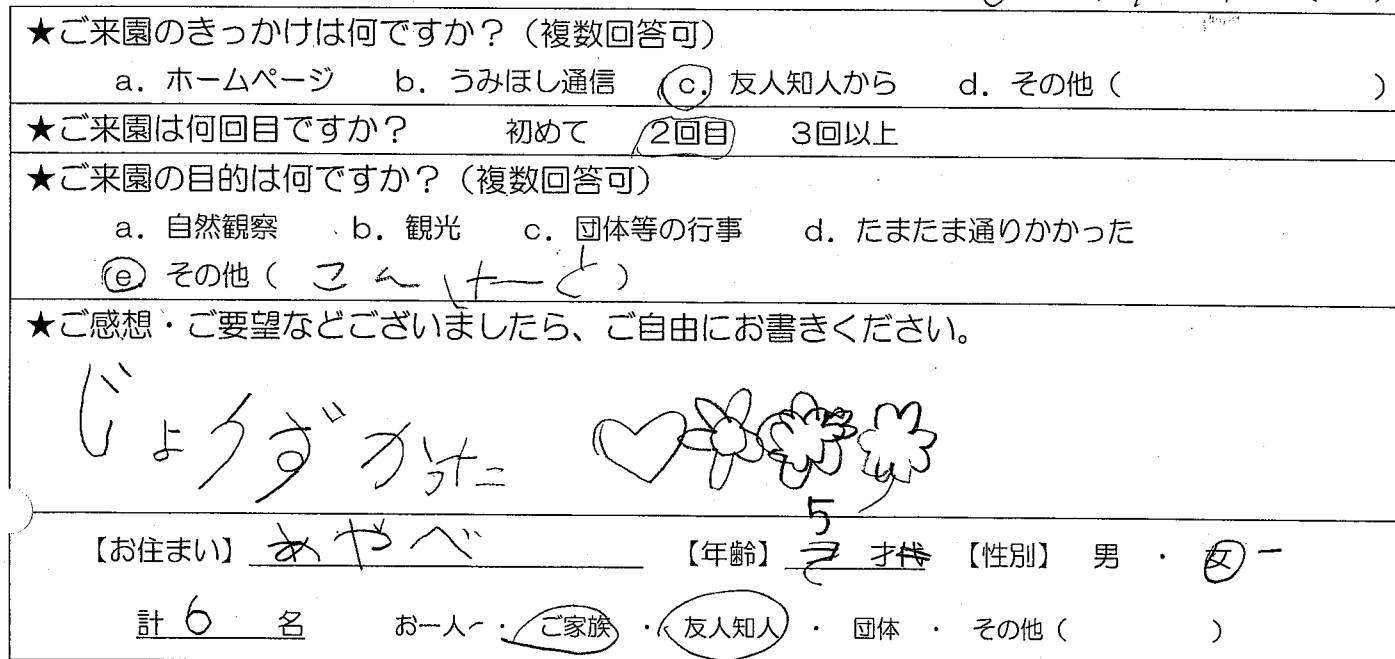 ★ご来園のきっかけは何ですか？（複数回答可）
a．ホームページ　b．うみほし通信　c．友人知人から　d．その他（　　　　　）
★ご来園は何回目ですか？　初めて　2回目　3回以上
★ご来園の目的は何ですか？（複数回答可）
a．自然観察　b．観光　c．団体等の行事　d．たまたま通りかかった
e　その他（こんけーと）
★ご感想・ご要望などございましたら、ご自由にお書きください。
じょうずかった
【お住まい】あやべ　【年齢】5才　【性別】男・女
計6名　お一人・ご家族・友人知人・団体・その他（　　　）